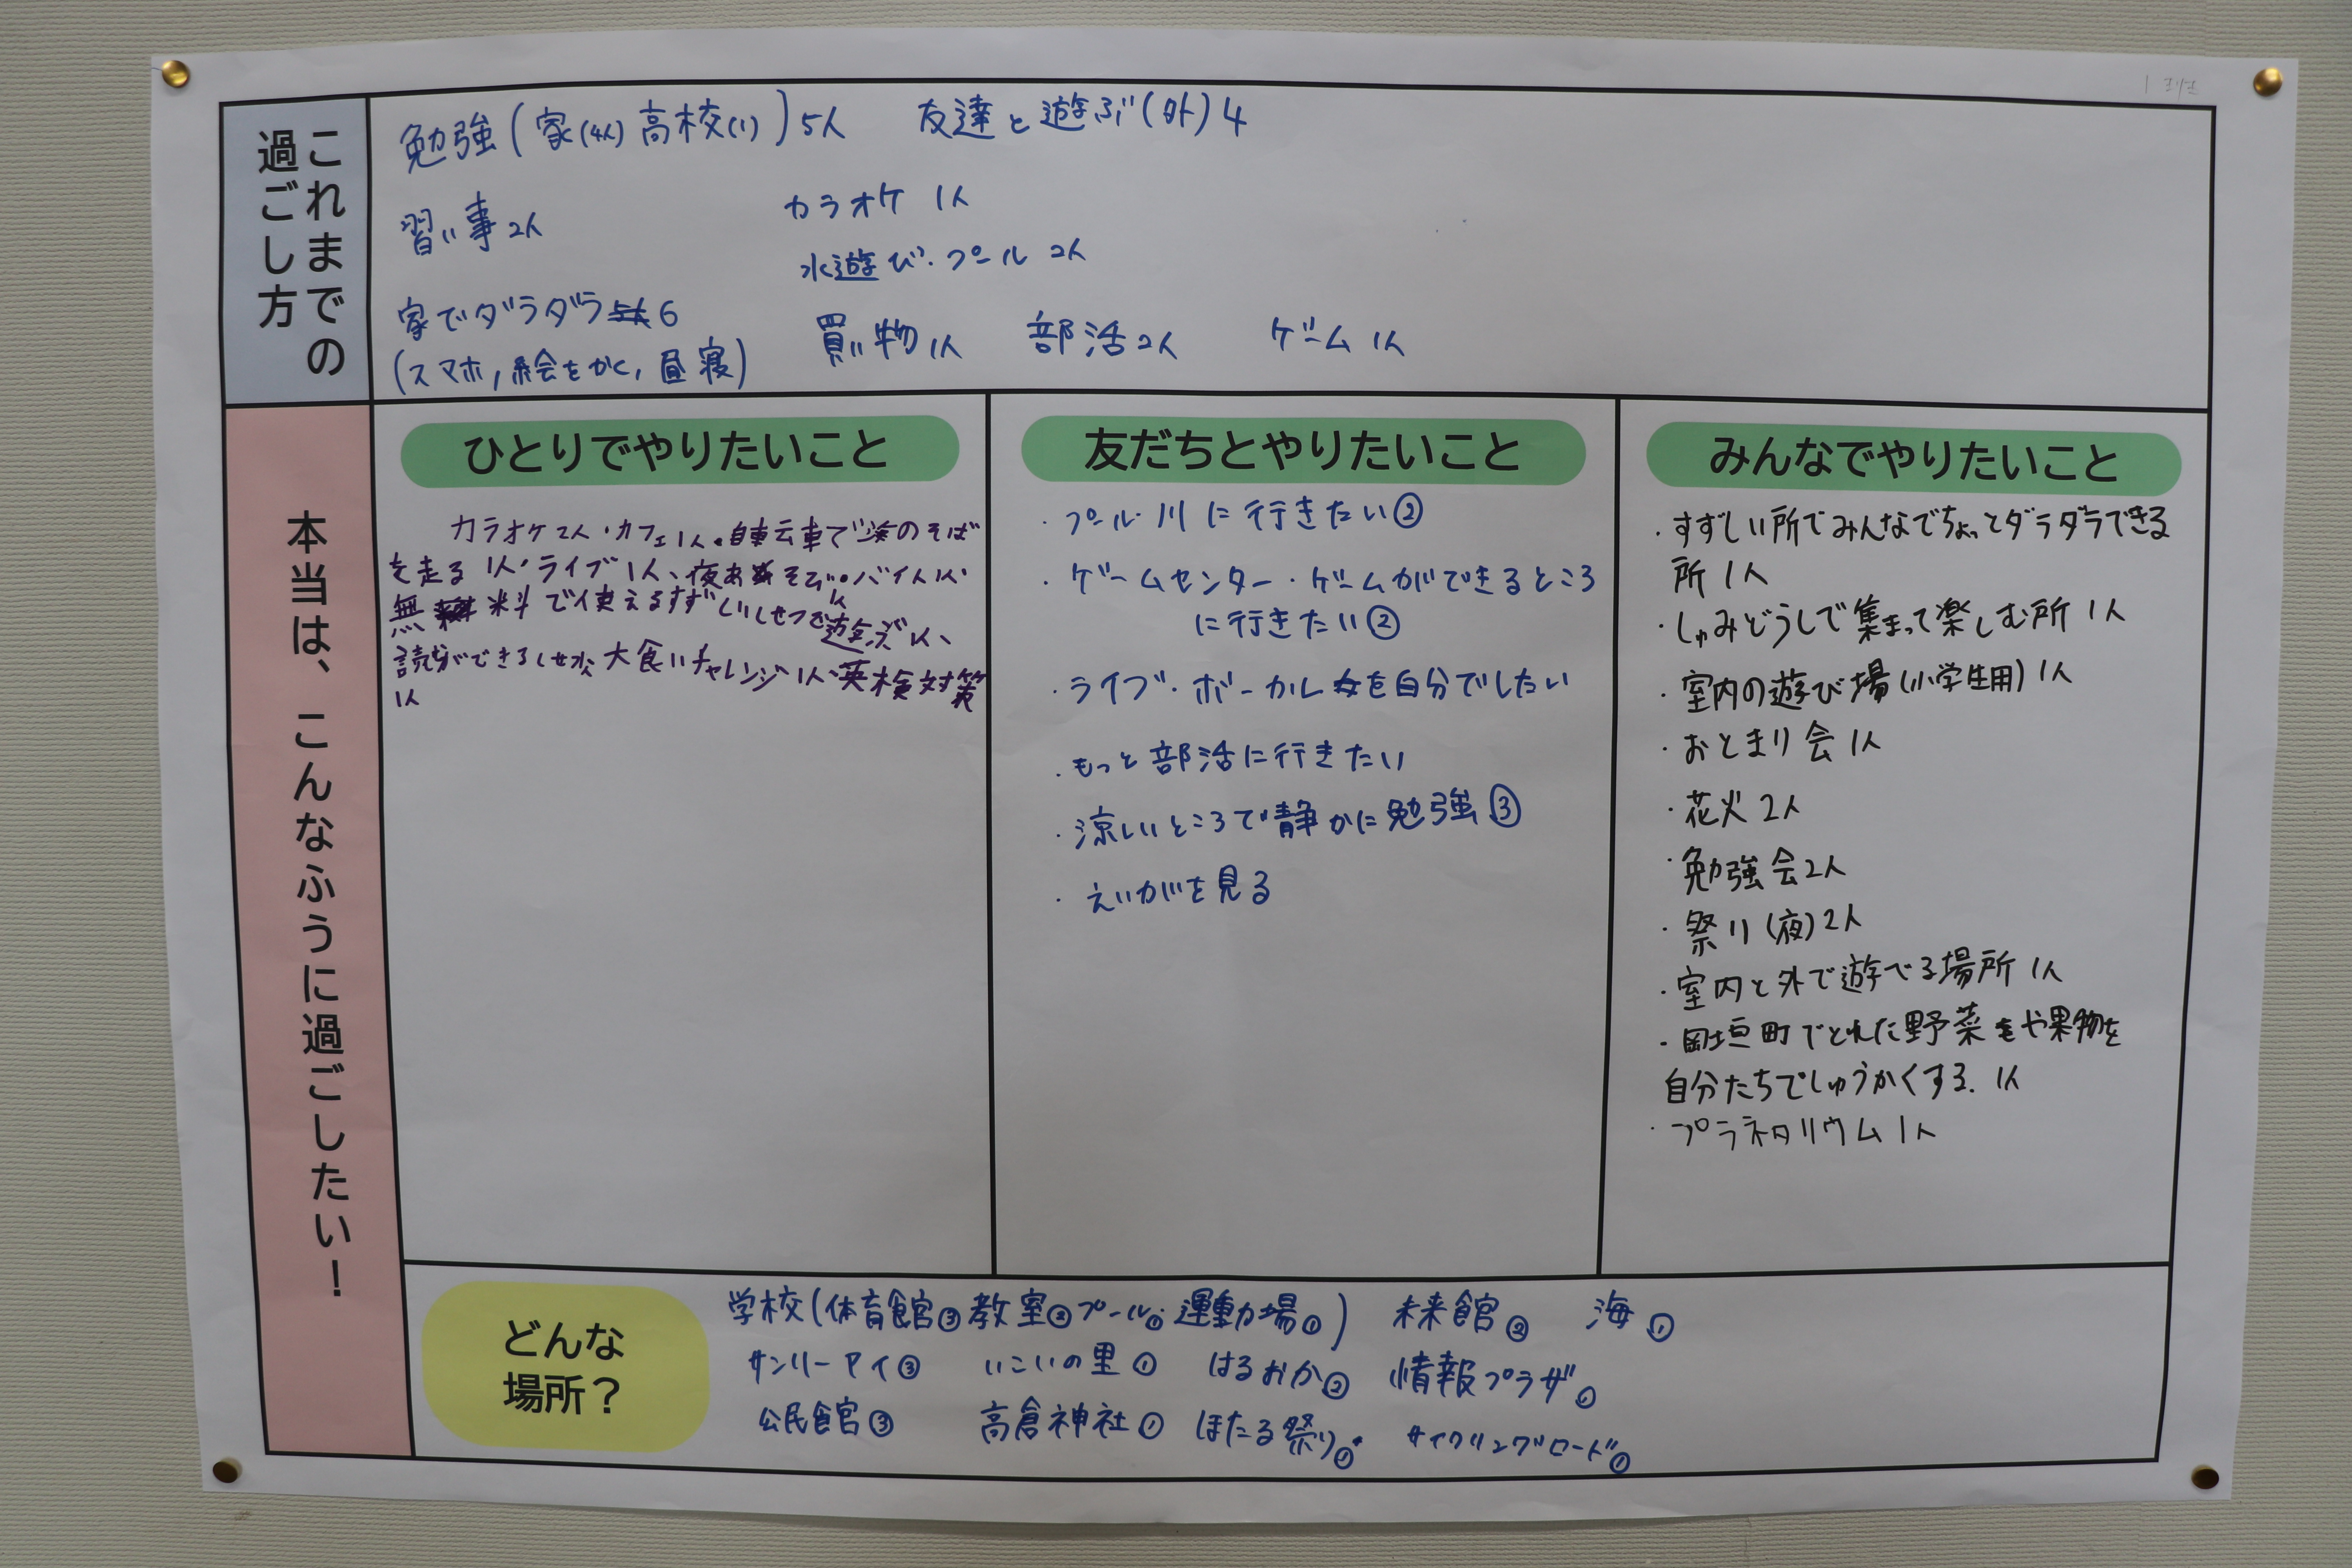 これまでの
過ごし方
勉強(家(4人)高校(1))5人 友達と遊ぶ(外)4
習い事2人 カラオケ 1人
水遊び・プール 2人
家でダラダラ 6
(スマホ,絵をかく,昼寝) 買い物1人 部活2人 ゲーム 1人
本当は、こんなふうに過ごしたい!
ひとりでやりたいこと
カラオケ2人・カフェ1人・自転車で海のそば
を走る 1人・ライブ1人、夜あそび・バイト1人
無料で使えるすずしいしせつで遊ぶ1人、
読書ができるしせつ 大食いチャレンジ1人・英検対策
1人
友だちとやりたいこと
・プール 川に行きたい②
・ゲームセンター・ゲームができるところ
に行きたい②
・ライブ・ボーカルを自分でしたい
・もっと部活に行きたい
・涼しいところで静かに勉強③
・えいがを見る
みんなでやりたいこと
・すずしい所でみんなでちょっとダラダラできる
所 1人
・しゅみどうしで集まって楽しむ所 1人
・室内の遊び場(小学生用) 1人
・おとまり会 1人
・花火 2人
・勉強会2人
・祭り(夜)2人
・室内と外で遊べる場所 1人
・岡垣町でとれた野菜や果物を
自分たちでしゅうかくする. 1人
・プラネタリウム 1人
どんな
場所?
学校(体育館③教室②プール①運動場①) 未来館② 海①
サンリーアイ③ いこいの里① はるおか② 情報プラザ①
公民館③ 高倉神社① ほたる祭り① サイクリングロード①